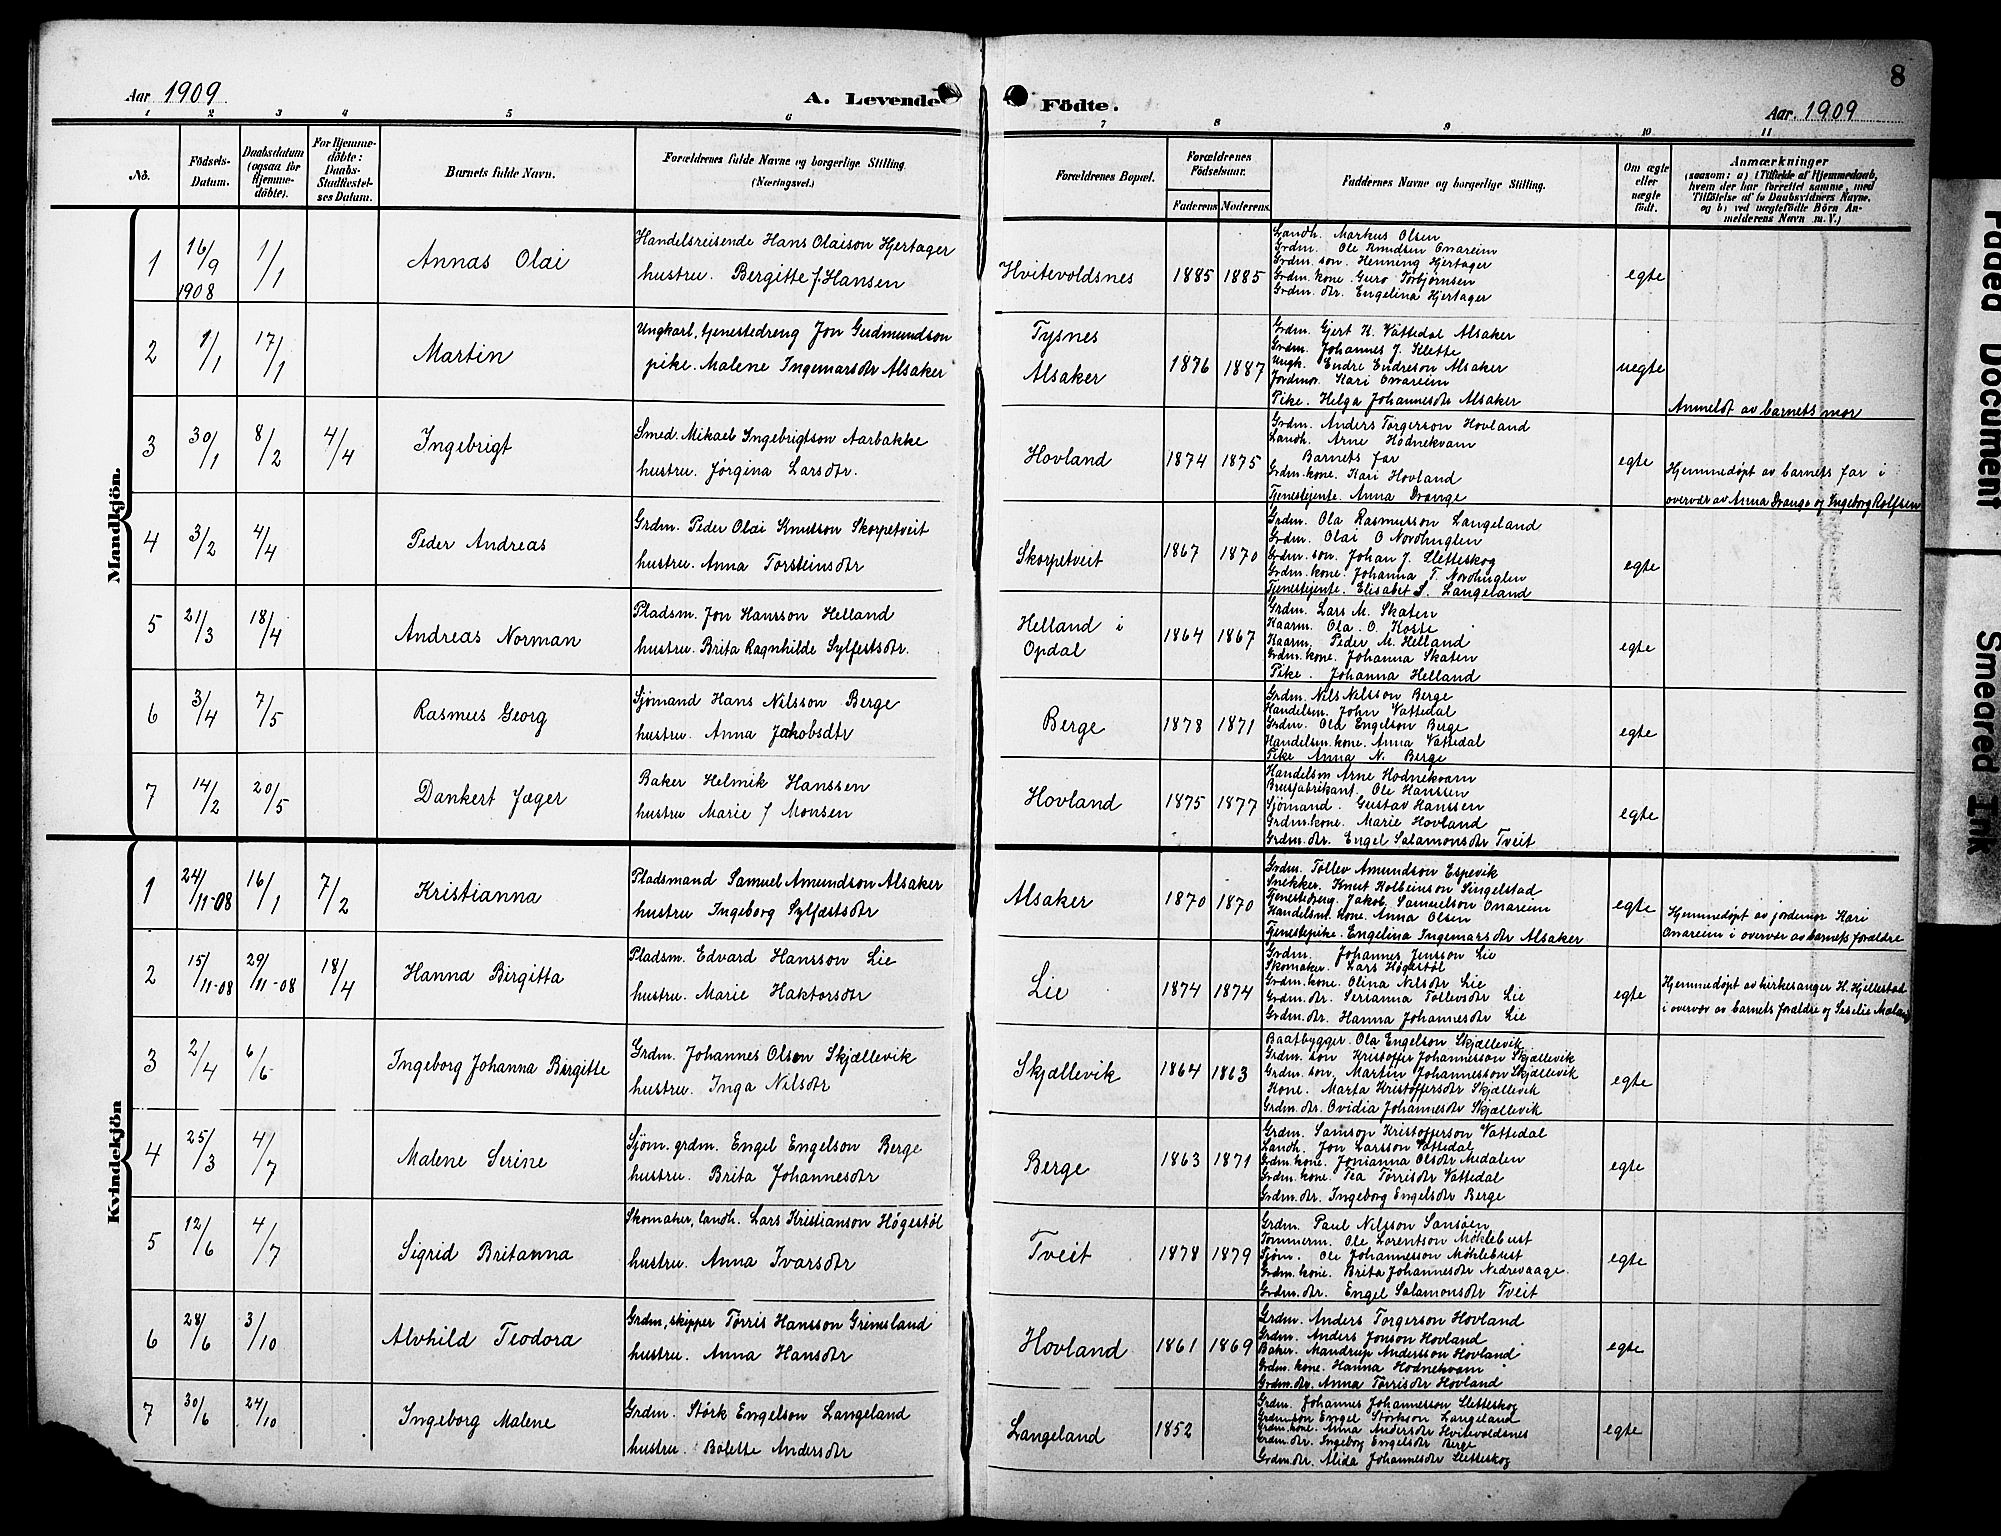 8
Aar 1909
A. Levende Födte.
Aar 1909
1 2 3 4 5 6 7 8 9 10 11
No.
Födsels-Datum.
Daabsdatum (ogsaa for Hjemmedöbte).
For Hjemmedöbte: Daabs-Stadfæstelses Datum.
Barnets fulde Navn.
Forældrenes fulde Navne og borgerlige Stilling.
(Næringsvei.)
Forældrenes Bopæl.
Forældrenes Födselsaar.
Faderens Moderens
Faddernes Navne og borgerlige Stilling.
Om ægte eller uægte født.
Anmærkninger
(saasom: a) i Tilfælde af Hjemmedaab, hvem der har forrettet samme, med Tilföielse af to Daabsvidners Navne, og b) ved uægtefödte Börn Anmelderens Navn m. V.)
Mandkjön.
1 16/9 1908 1/1 Annas Olai
Handelsreisende Hans Olaison Hjertager
hustru. Bergitte f. Hansen
Hvitevoldsnes 1885 1885
Landh. Markus Olsen
Grdm. Ole Knudsen Onareim
Grdm. søn. Henning Hjertager
Grdm. kone. Guro Torbjørnsen
Grdm. dtr. Engelina Hjertager
egte
2 1/1 17/1 Martin
Ungkarl, tjenestedreng Jon Gudmundson
pike. Malene Ingemarsdtr Alsaker
Tysnes
Alsaker 1876 1887
Grdm. Gjert K. Vattedal Alsaker
Grdm. Johannes J. Klette
Ungk. Endre Endreson Alsaker
Jordmor. Kari Onareim
Pike. Helga Johannesdtr Alsaker
uegte
Anmeldt av barnets mor
3 30/1 8/2 4/4 Ingebrigt
Smed. Mikael Ingebrigtson Aarbakke
hustru. Jørgina Larsdtr.
Hovland 1874 1875
Grdm. Anders Torgerson Hovland
Landh. Arne Hodnekvam
Barnets far
Grdm. kone. Kari Hovland
Tjenestejente. Anna Drange
egte
Hjemmedøpt av barnets far i
overvær av Anna Drange og Ingeborg Rolfsen
4 3/2 4/4 Peder Andreas
Grdm. Peder Olai Knutson Skorpetveit
hustru. Anna Torsteinsdtr
Skorpetveit 1867 1870
Grdm. Ola Rasmusson Langeland
Grdm. Olai O Nordhuglen
Grdm. søn. Johan J. Sletteskog
Grdm. kone. Johanna T. Nordhuglen
Tjenestejente. Elisabet S. Langeland
egte
5 21/3 18/4 Andreas Norman
Pladsm. Jon Hansson Helland
hustru. Brita Ragnhilde Sylfestsdtr.
Helland i
Opdal 1864 1867
Grdm. Lars M. Skaten
Kaarm. Ola. O. Koste
Kaarm. Peder M. Helland
Grdm. kone. Johanna Skaten
Pike. Johanna Helland
egte
6 3/4 7/5 Rasmus Georg
Sjømand Hans Nilsson Berge
hustru. Anna Jakobsdtr
Berge 1878 1871
Grdm. Nils Nilsson Berge
Handelsm. John Vattedal
Grdm. Ola Engelson Berge
Handelsm. kone. Anna Vattedal
Pike Anna N. Berge
egte
7 14/2 20/5 Dankert Jæger
Baker Helmik Hanssen
hustru Marie f Monsen
Hovland 1875 1877
Handelsm Arne Hodnekvam
Brusfabrikant. Ole Hanssen
Sjømand. Gustav Hanssen
Grdm. kone. Marie Hovland
Grdm. dtr. Engel Salamonsdtr Tveit
egte
Kvindekjön
1 24/11-08 16/1 7/2 Kristianna
Pladsmand Samuel Amundson Alsaker
hustru Ingeborg Sylfæstsdtr
Alsaker 1870 1870
Grdm. Tollev Amundson Espevik
Snekker. Knut Kolbeinson Singelstad
Tjenestedreng. Jakob Samuelson Onareim
Handelsm. kone. Anna Olsen
Tjenestepike. Engelina Ingemarsdtr Alsaker
egte
Hjemmedøpt av jordemor Kari
Onareim i overvær av barnets forældre
2 15/11-08 29/11-08 18/4 Hanna Birgitta
Pladsm. Edvard Hansson Lie
hustru. Marie Haktorsdtr
Lie 1874 1874
Grdm. Johannes Jensson Lie
Skomaker. Lars Høgestøl
Grdm. kone. Olina Nilsdtr Lie
Grdm. dtr. Serianna Tollevsdtr Lie
Grdm. dtr. Hanna Johannesdtr Lie
egte
Hjemmedøpt av kirkesanger H. Hjellestad
i overvær av barnets forældre og Seselie
3 2/4 6/6 Ingeborg Johanna Birgitte
Grdm. Johannes Olson Skjællevik
hustru. Inga Nilsdtr
Skjællevik 1864 1863
Baatbygger. Ola Engelson Skjællevik
Grdm. søn Kristoffer Johannesson Skjællevik
Grdm. søn, Martin Johannesson Skjællevik
Kone. Marta Kristoffersdtr Skjællevik
Grdm. dtr. Ovidia Johannesdtr Skjællevik
egte
4 25/3 4/7 Malene Serine
Sjøm. grdm. Engel Engelson Berge
hustru. Brita Johannesdtr
Berge 1863 1871
Grdm. Samson Kristofferson Vattedal
Landh. Jon Larsson Vattedal
Grdm. kone. Jonianna Olsdtr Medalen
Grdm. kone. Tea Tørrisdtr Vattedal
Grdm. dtr. Ingeborg Engelsdtr Berge
egte
5 12/6 4/7 Sigrid Britanna
Skomaker, landh. Lars Kristianson Høgestøl
hustru. Anna Ivarsdtr
Tveit 1878 1879
Grdm. Paul Nilsson Sansøen
Tømmerm. Ole Lorentson Møklebust
Sjøm. Ole Johannesson Møklebust
Grdm. kone. Brita Johannesdtr Nedrevaage.
Grdm. dtr. Engel Salamonsdtr Tveit
egte
6 28/6 3/10 Alvhild Teodora
Grdm, skipper Tørris Hansson Grimsland
hustru. Anna Hansdtr
Hovland 1861 1869
Grdm. Anders Torgerson Hovland
Grdm. Anders Jonson Hovland
Baker. Mandrup Andersson Hovland
Grdm. kone. Hanna Hodnekvam
Grdm. dtr. Anna Tørrisdtr Hovland
egte
7 30/6 24/10 Ingeborg Malene
Grdm. Størk Engelson Langeland
hustru. Bolette Andersdtr
Langeland 1852
Grdm. Johannes Johannesson Sletteskog
Grdm søn Engel Størkson Langeland
Grdm. kone. Anna Andersdtr Hvitevoldsnes
Grdm. dtr. Ingeborg Engelsdtr Berge
Grdm. dtr. Alida Johannesdtr Sletteskog
egte
Faded Document
Smeared Ink